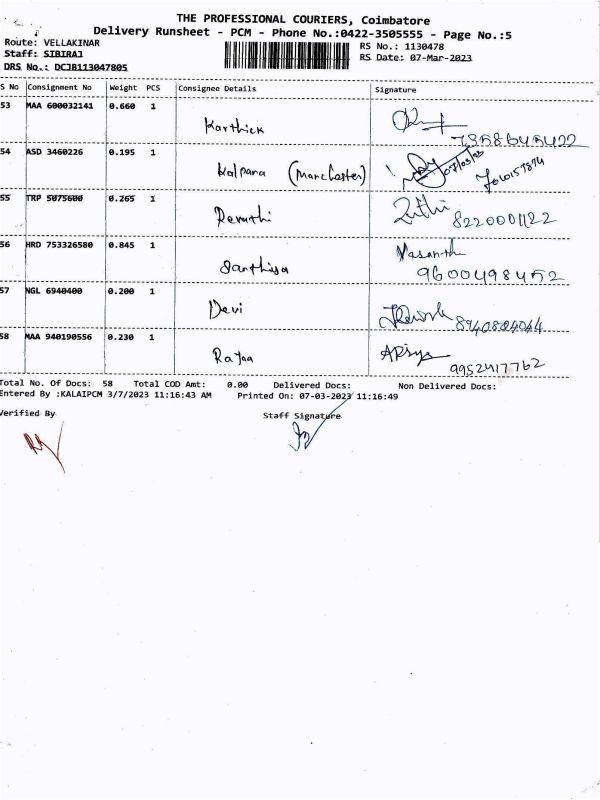 THE PROFESSIONAL COURIERS, Coimbatore
Delivery Runsheet - PCM - Phone No.:0422-3505555 - Page No.:5
Route: VELLAKINAR
RS No.: 1130478
Staff: SIBIRAJ
RS Date: 07-Mar-2023
DRS No.: DCJB113047805
S No Consignment No Weight PCS Consignee Details Signature
53 MAA 600032141 0.660 1 Karthick
7858645422
54 ASD 3460226 0.195 1 Kalpana (Manchester) 07/03/23
55 TRP 5075600 0.265 1 Revathi
8220001122
56 HRD 753326580 0.845 1 Vasanth
9600498452
57 NGL 6940400 0.200 1 Devi
58 MAA 940190556 0.230 1 Rajaa
9952417762
Total No. Of Docs: 58 Total COD Amt: 0.00 Delivered Docs: Non Delivered Docs:
Entered By :KALAIPCM 3/7/2023 11:16:43 AM Printed On: 07-03-2023 11:16:49
Verified By Staff Signature